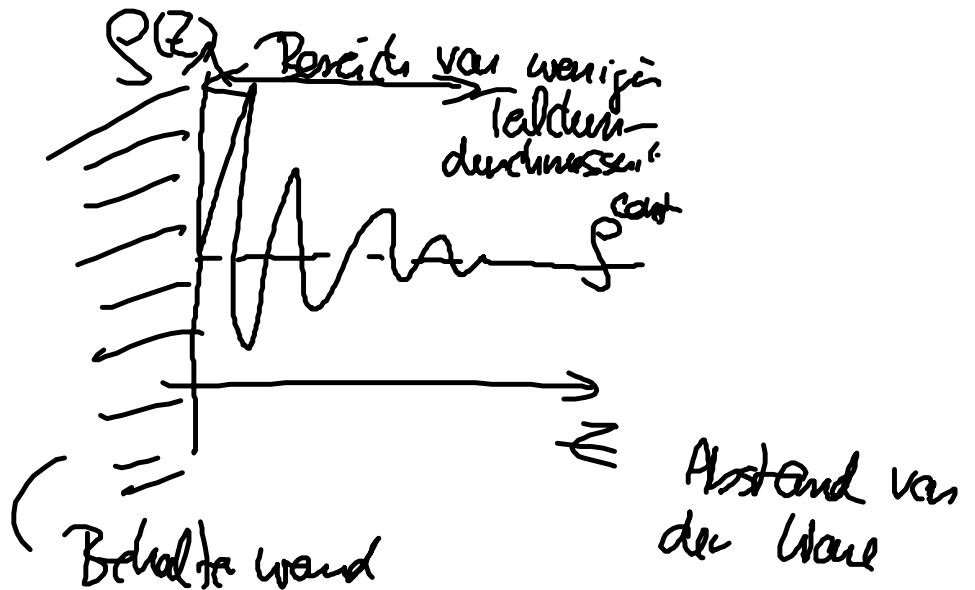 ρ(z)
Bereich von wenigen
Teilchen-
durchmessern
ρ const
z
Abstand von
der Wand
Behälterwand